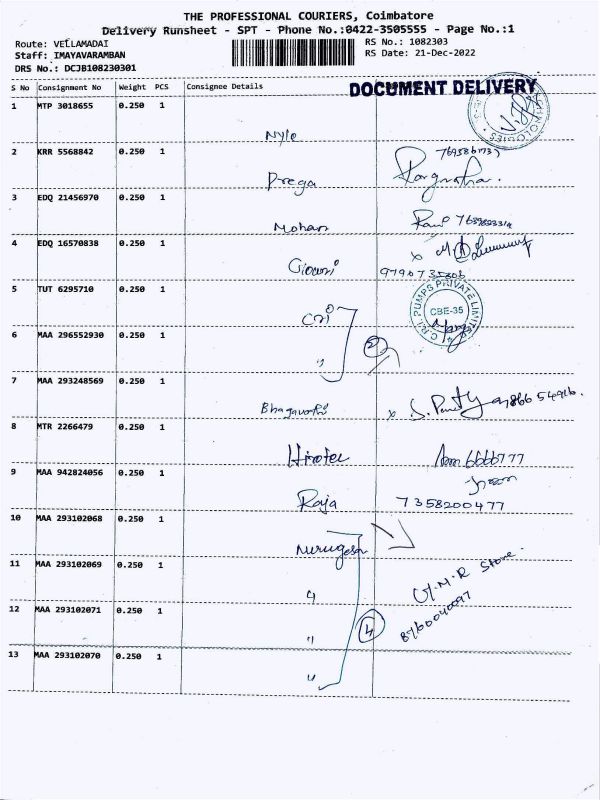 THE PROFESSIONAL COURIERS, Coimbatore
Delivery Runsheet - SPT - Phone No.:0422-3505555 - Page No.:1
Route: VELLAMADAI
RS No.: 1082303
Staff: IMAYAVARAMBAN
RS Date: 21-Dec-2022
DRS No.: DCJB108230301
S No Consignment No Weight PCS Consignee Details
DOCUMENT DELIVERY
1 MTP 3018655 0.250 1
Nylo
2 KRR 5568842 0.250 1
Prega
3 EDQ 21456970 0.250 1
Mohan
4 EDQ 16570838 0.250 1
Gowri
5 TUT 6295710 0.250 1
CRI
C.R.I. PUMPS PRIVATE LIMITED
CBE-35
6 MAA 296552930 0.250 1
"
2
7 MAA 293248569 0.250 1
Bhagavathi
8 MTR 2266479 0.250 1
Hirotec
9 MAA 942824056 0.250 1
Raja 7358200477
10 MAA 293102068 0.250 1
Murugesan
11 MAA 293102069 0.250 1
"
G.M.R Store.
12 MAA 293102071 0.250 1
"
4
13 MAA 293102070 0.250 1
"